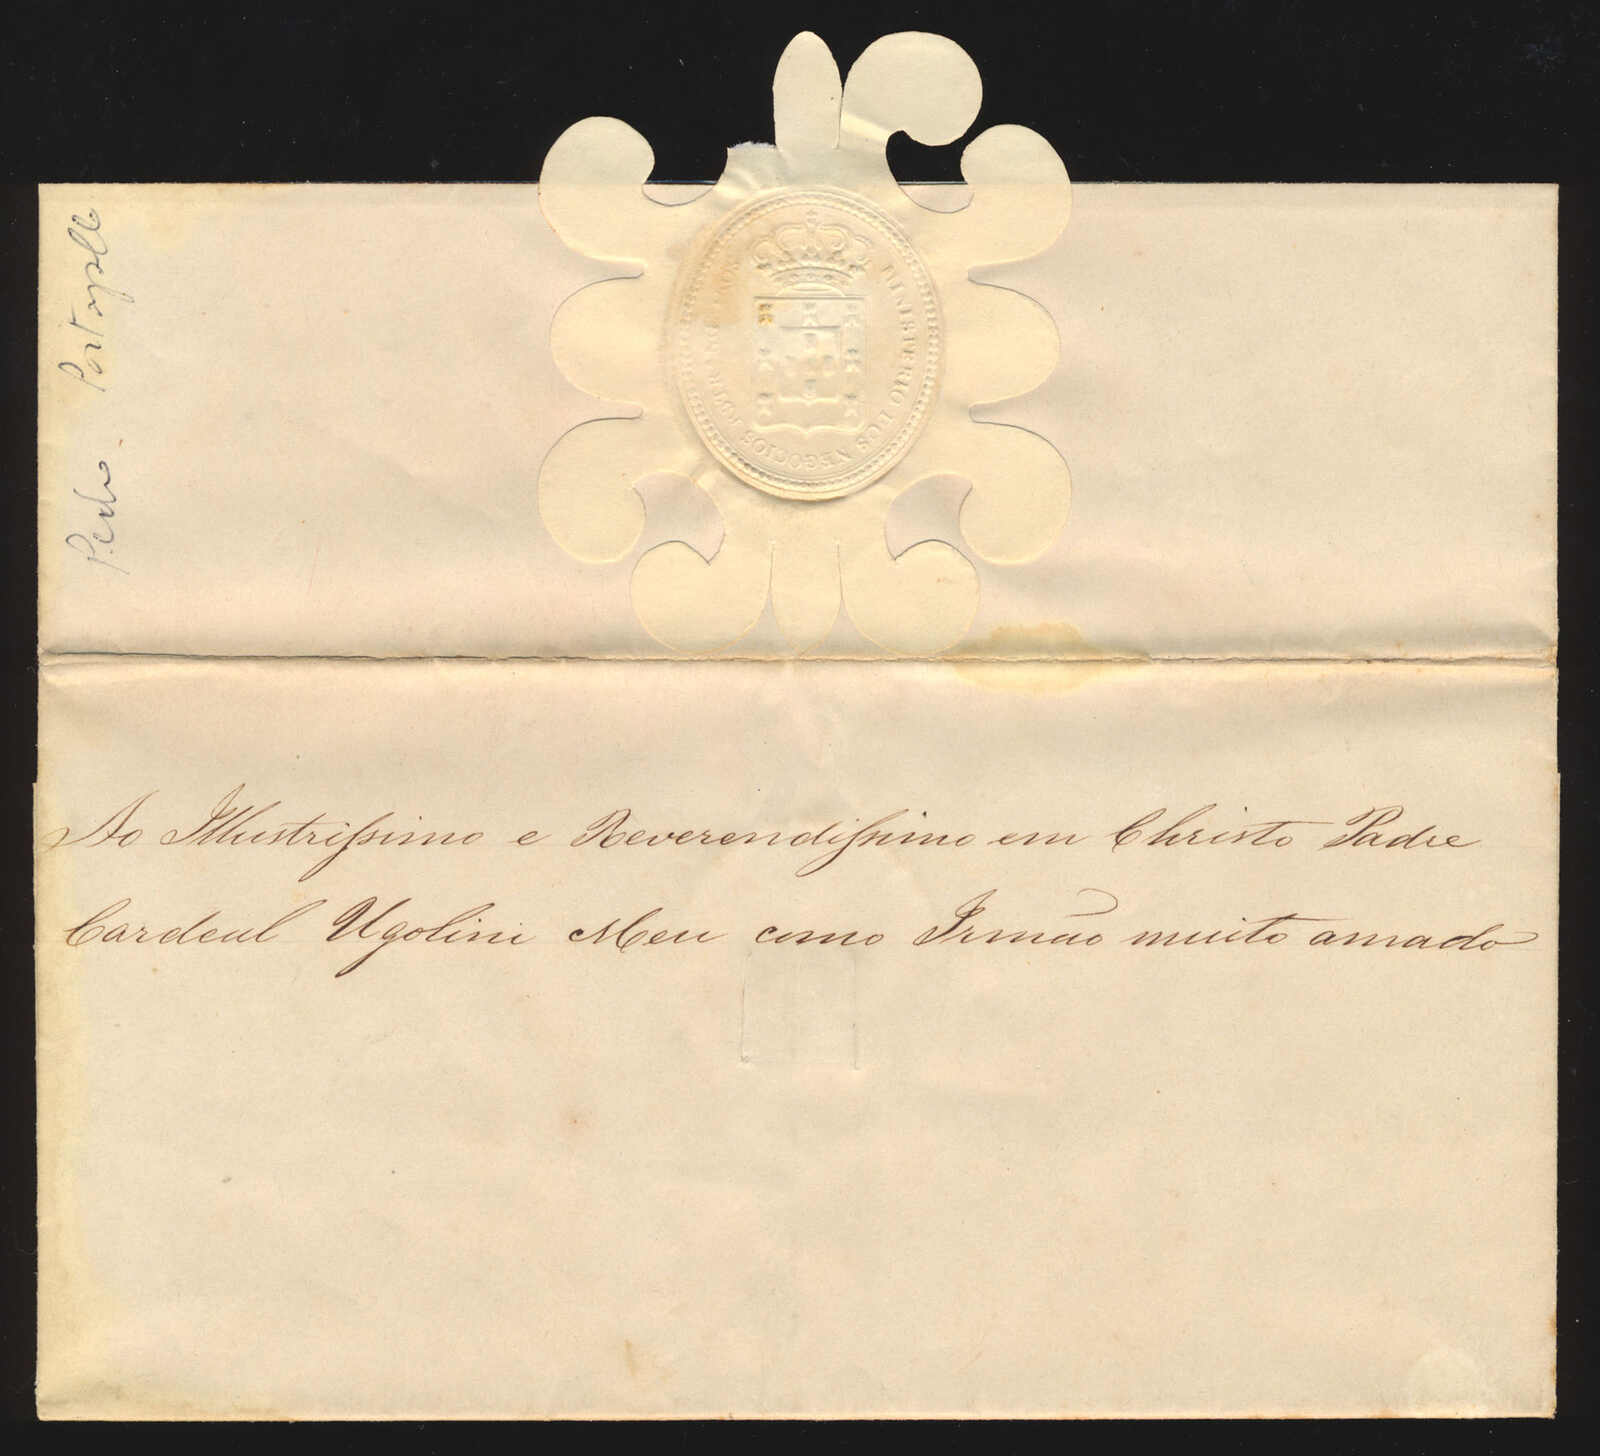 Pedro. Portogallo
MINISTERIO DOS NEGOCIOS
Ao Illustrissimo e Reverendissimo em Christo Padre
Cardeal Ugolini Meu como Irmão muito amado